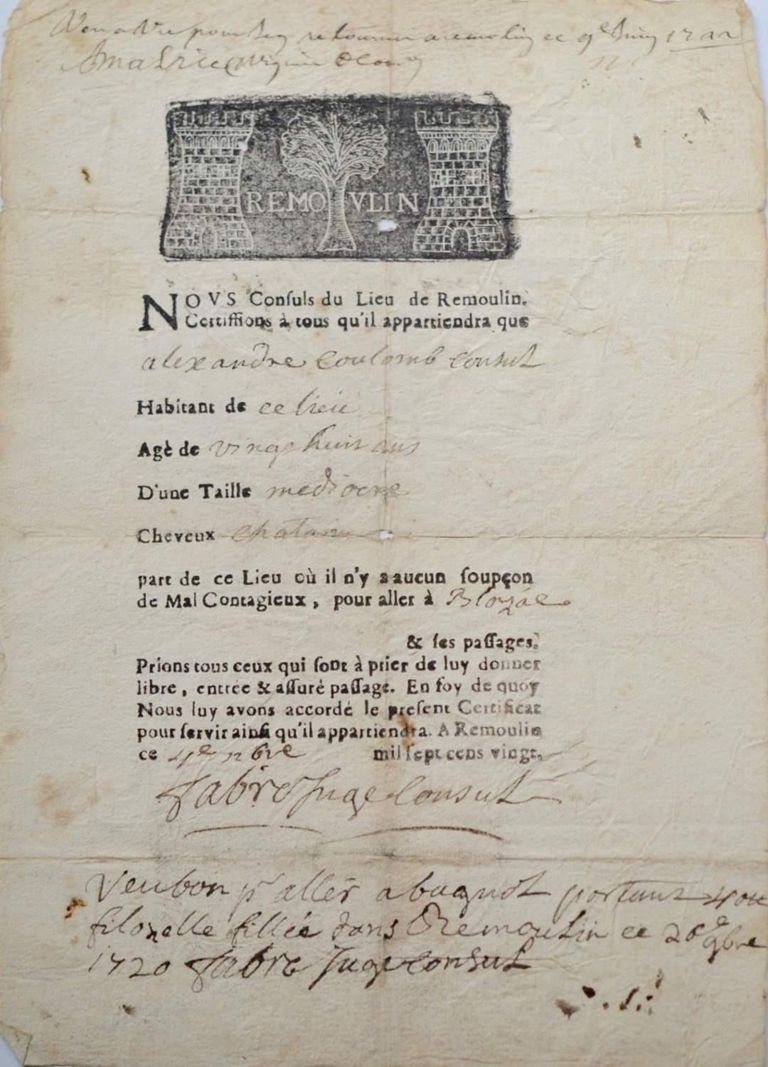 Veu a
retourner a remoulin ce 9e Juin
REMOVLIN
NOVS Conſuls du Lieu de Remoulin.
Certiffions à tous qu'il appartiendra que
alexandre coulomb consul
Habitant de ce lieu
Agè de vingt huit ans
D'une Taille mediocre
Cheveux chatans
part de ce Lieu où il n'y a aucun ſoupçon
de Mal Contagieux, pour aller à Blozac
& ſes paſſages.
Prions tous ceux qui ſont à prier de luy donner
libre, entrée & aſſuré paſſage. En foy de quoy
Nous luy avons accordé le preſent Certificat
pour ſervir ainſi qu'il appartiendra. A Remoulin
ce 4e nbre mil ſept cens vingt.
fabre Juge Consul
Veu bon pr aller a bagnol portant 4
filozelle fillée dans Remoulin ce 20e 9bre
1720 fabre Juge consul